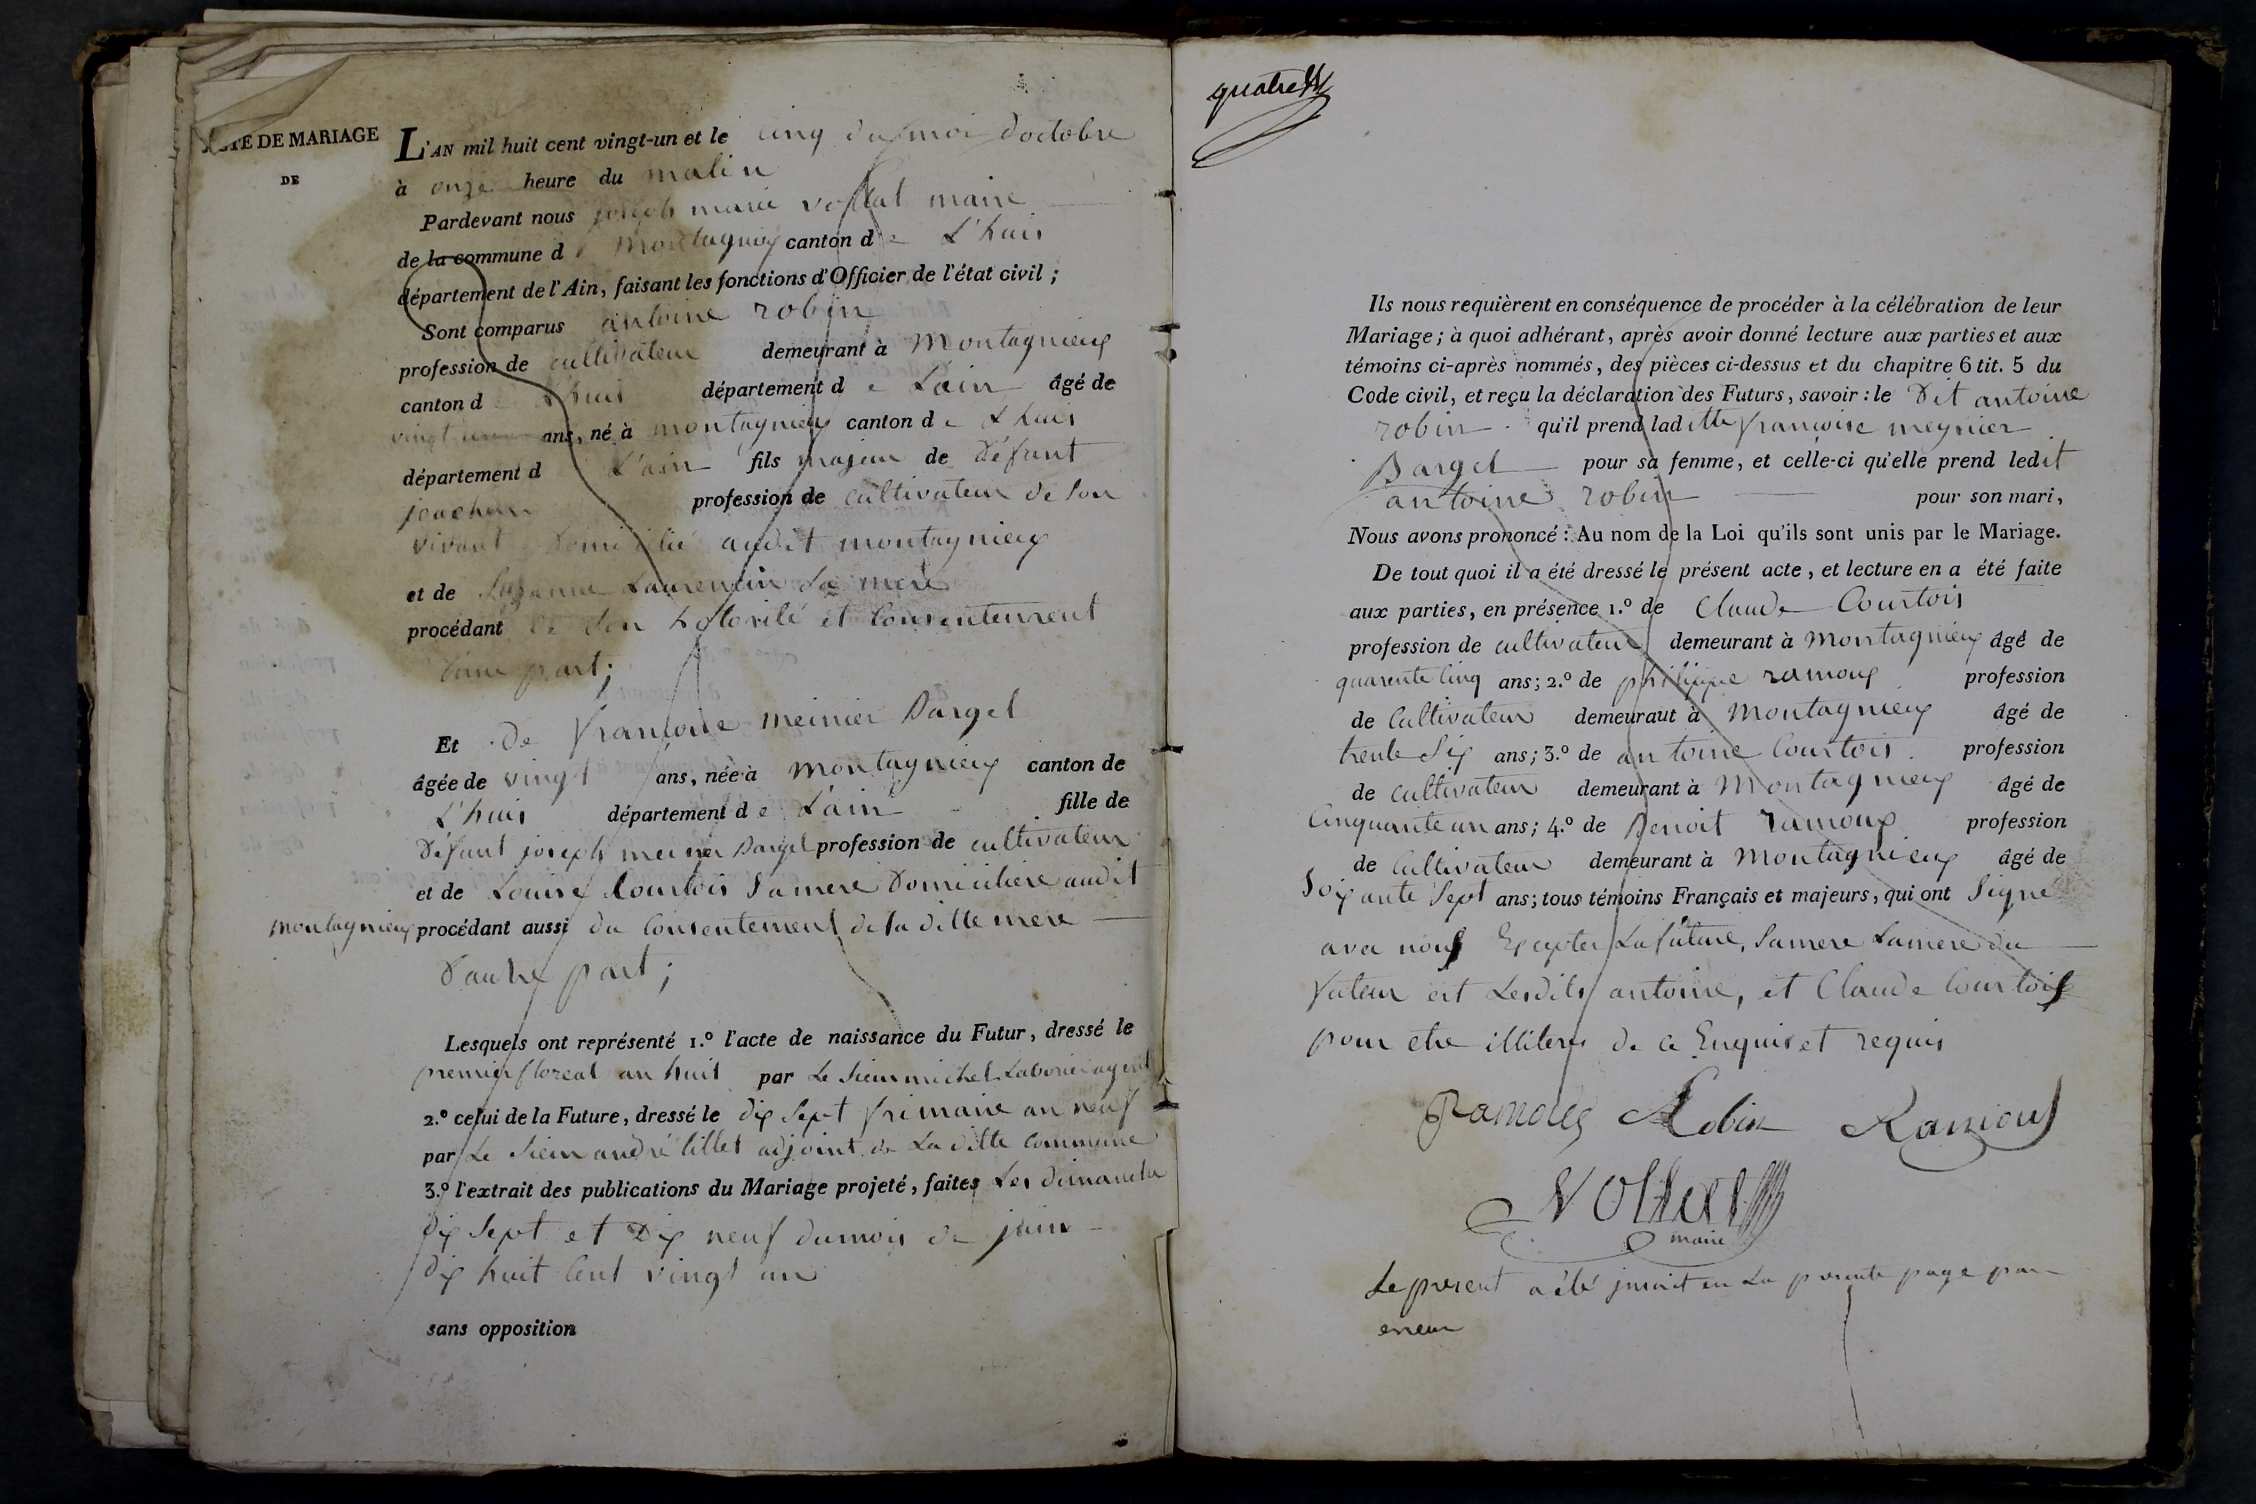 ACTE DE MARIAGE
DE
L'AN mil huit cent vingt-un et le cinq du moi d'octobre
à onze heure du matin
Pardevant nous joseph marie vollat maire
de la commune d montagnieux canton de L'huis
département de l'Ain, faisant les fonctions d'Officier de l'état civil ;
Sont comparus antoine robin
profession de cultivateur demeurant à montagnieux
canton d L'huis département de Lain âgé de
vingt ans, né à montagnieux canton de Lhuis
département d L'ain fils majeur de Défunt
joachim profession de cultivateur de son
vivant domicilié audit montagnieux
et de Suzanne Laurentin Sa mere
procédant de son hotorité et Consentement
d'une part ;
Et de francoise meinier Barget
âgée de vingt ans, née à montagnieux canton de
L'huis département de L'ain fille de
Défunt joseph meinier Barget profession de cultivateur
et de Louise Courtois Sa mere Domiciliere audit
montagnieux procédant aussi du Consentement de la ditte mere
D'autre part ;
Lesquels ont représenté 1.º l'acte de naissance du Futur, dressé le
premier floreal an huit par Le Sieur michel agent
2.º celui de la Future, dressé le dix Sept frimaire an neuf
par Le Sieur andré adjoint de La ditte Commune
3.º l'extrait des publications du Mariage projeté, faites Les dimanche
dix Sept et Dix neuf du mois de juin
dix huit Cent vingt un
sans opposition
quatre
Ils nous requièrent en conséquence de procéder à la célébration de leur
Mariage ; à quoi adhérant, après avoir donné lecture aux parties et aux
témoins ci-après nommés, des pièces ci-dessus et du chapitre 6 tit. 5 du
Code civil, et reçu la déclaration des Futurs, savoir : le Dit antoine
robin qu'il prend laditte francoise meynier
Barget pour sa femme, et celle-ci qu'elle prend ledit
antoine robin pour son mari,
Nous avons prononcé : Au nom de la Loi qu'ils sont unis par le Mariage.
De tout quoi il a été dressé le présent acte, et lecture en a été faite
aux parties, en présence 1.º de Claude Courtois
profession de cultivateur demeurant à montagnieux âgé de
quarente Cinq ans ; 2.º de philippe ramoux profession
de Cultivateur demeuraut à montagnieux âgé de
trente Six ans ; 3.º de antoine Courtois profession
de cultivateur demeurant à montagnieux âgé de
Cinquante un ans ; 4.º de Benoit ramoux profession
de Cultivateur demeurant à montagnieux âgé de
Soixante Sept ans ; tous témoins Français et majeurs, qui ont Signé
avec nous Excepter La future, Sa mere La mere du
futeur et Lesdits antoine, et Claude Courtois
pour etre illiteres de ce Enquis et requis
Ramoux Robin Ramoux
Vollat
maire
Le present a été en La presente page par
erreur